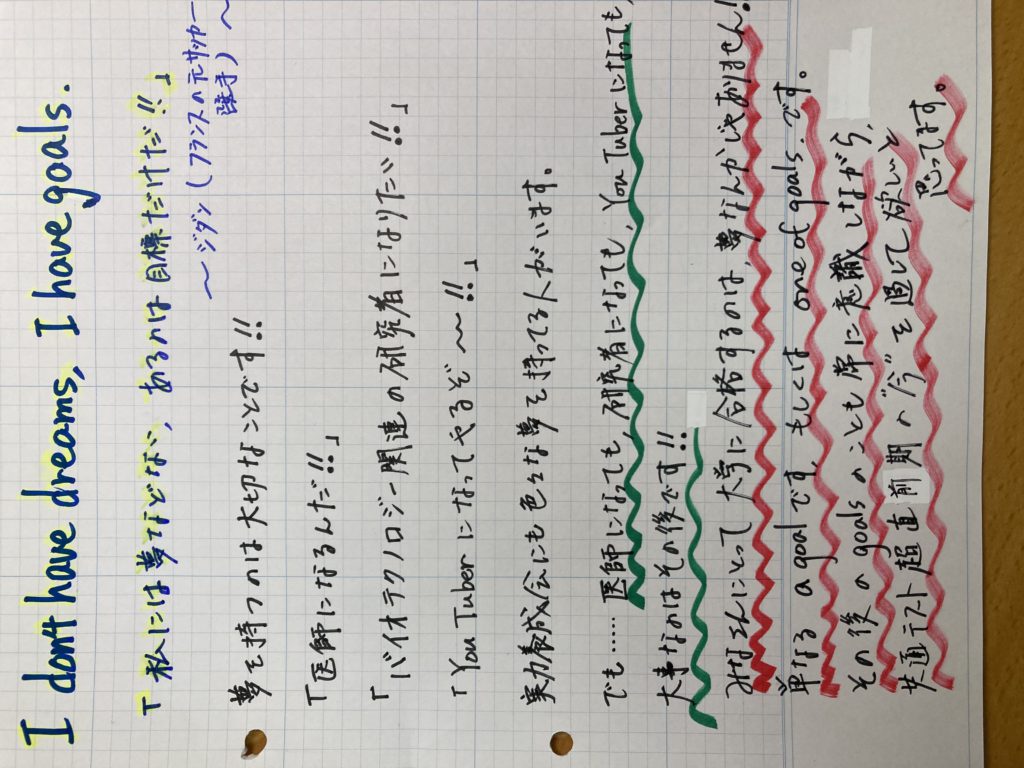 I don't have dreams, I have goals.
「私には夢などない、あるのは目標だけだ!!」
〜ジダン(フランスの元サッカー選手)〜
夢を持つのは大切なことです!!
「医師になるんだ!!」
「バイオテクノロジー関連の研究者になりたい!!」
「YouTuberになってやるぞ〜!!」
実力養成会にも色々な夢を持ってる人がいます。
でも……医師になっても、研究者になっても、YouTuberになっても、
大事なのはその後です!!
みなさんにとって大学に合格するのは、夢なんかじゃありません!
単なる a goalです、もしくは one of goals.です。
その後のgoalsのことも常に意識しながら、
共通テスト超直前期の"今"を過して欲しいと
思ってます。